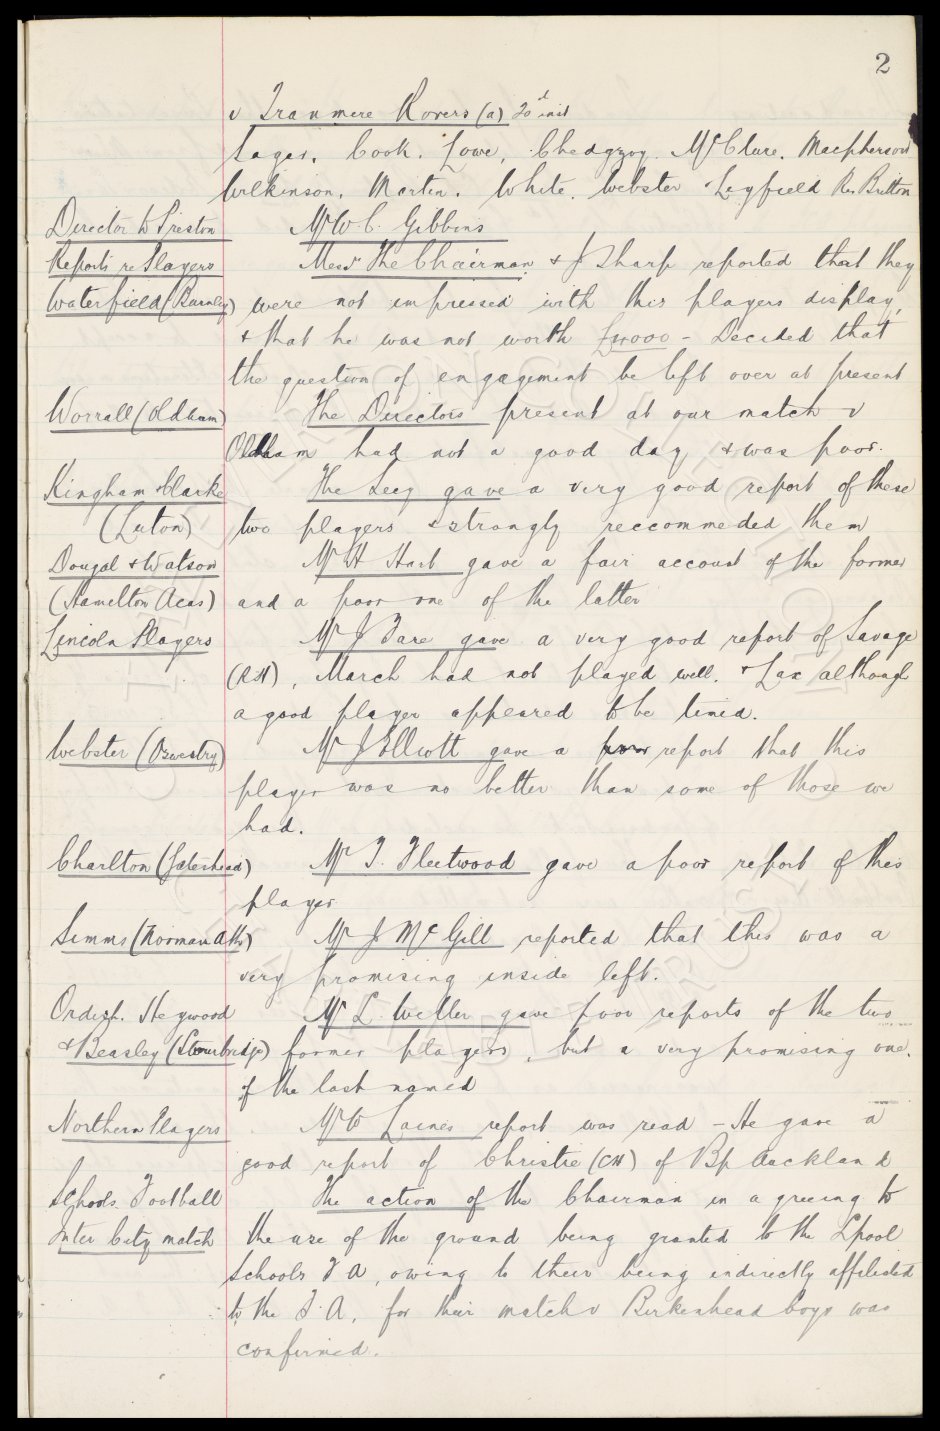 2
v Tranmere Rovers (a) 20th inst
Sagar. Cook. Lowe, Chedgzoy. McClure. Macpherson
Wilkinson. Martin. White. Webster Layfield Res Britton
Director to Preston Mr W. C. Gibbins
Reports re Players Messrs The Chairman & J Sharp reported that they
Waterfield (Burnley) were not impressed with this players display,
& that he was not worth £4000 - Decided that
the question of engagement be left over at present
Worrall (Oldham) The Directors present at our match v
Oldham had not a good day & was poor.
Kingham & Clarke The Secy gave a very good report of these
(Luton) two players & strongly reccommeded them
Dougal & Watson Mr H Hart gave a fair account of the former
(Hamelton Acas) and a poor one of the latter
Lincoln Players Mr J Fare gave a very good report of Savage
(RH), March had not played well. & Lax although
a good player appeared to be timid.
Webster (Oswestry) Mr J Elliott gave a report that this
player was no better than some of those we
had.
Charlton (Gateshead) Mr T. Fleetwood gave a poor report of this
player
Simms (Norman Ath) Mr J McGill reported that this was a
very promising inside left.
Ordish. Heywood Mr L. Weller gave poor reports of the two
& Beasley (Stourbridge) former players, but a very promising one,
of the last named
Northern Players Mr W Laines report was read - He gave a
good report of Christie (CH) of Bp Auckland
Schools Football The action of the Chairman in agreeing to
Inter City match the use of the ground being granted to the Lpool
Schools F A, owing to their being indirectly affiliated
to the F. A. for their match v Birkenhead boys was
confirmed.